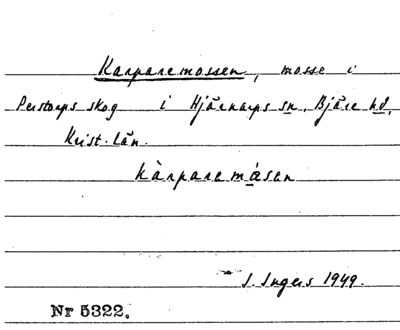 Karparemossen, mosse i
Perstorps skog i Hjärnarps sn, Bjäre hd,
Krist. län.
kàrparemåsen
I. Ingers 1949.
Nr 5322.